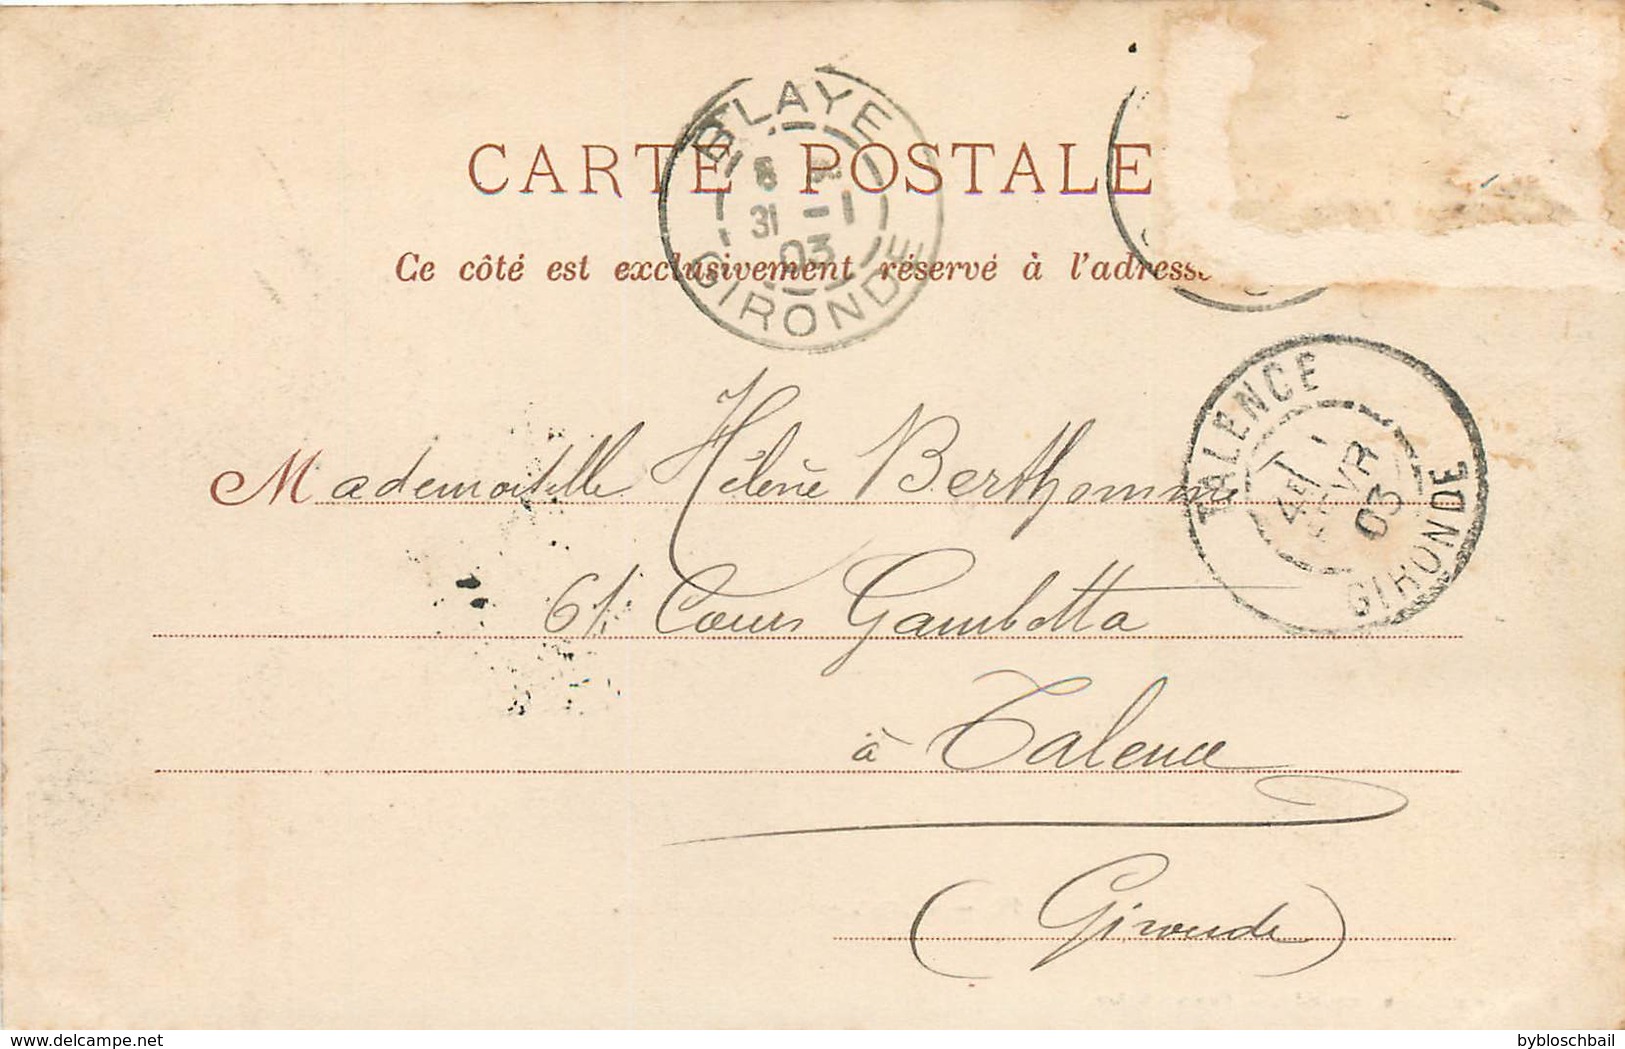 BLAYE
31 - 1
03
GIRONDE
CARTE POSTALE
Ce côté est exclusivement réservé à l'adresse
TALENCE
03
GIRONDE
Mademoiselle Hélène Berthomme
61 Cours Gambetta
à Talence
(Gironde)
delcampe.net
bybloschbail